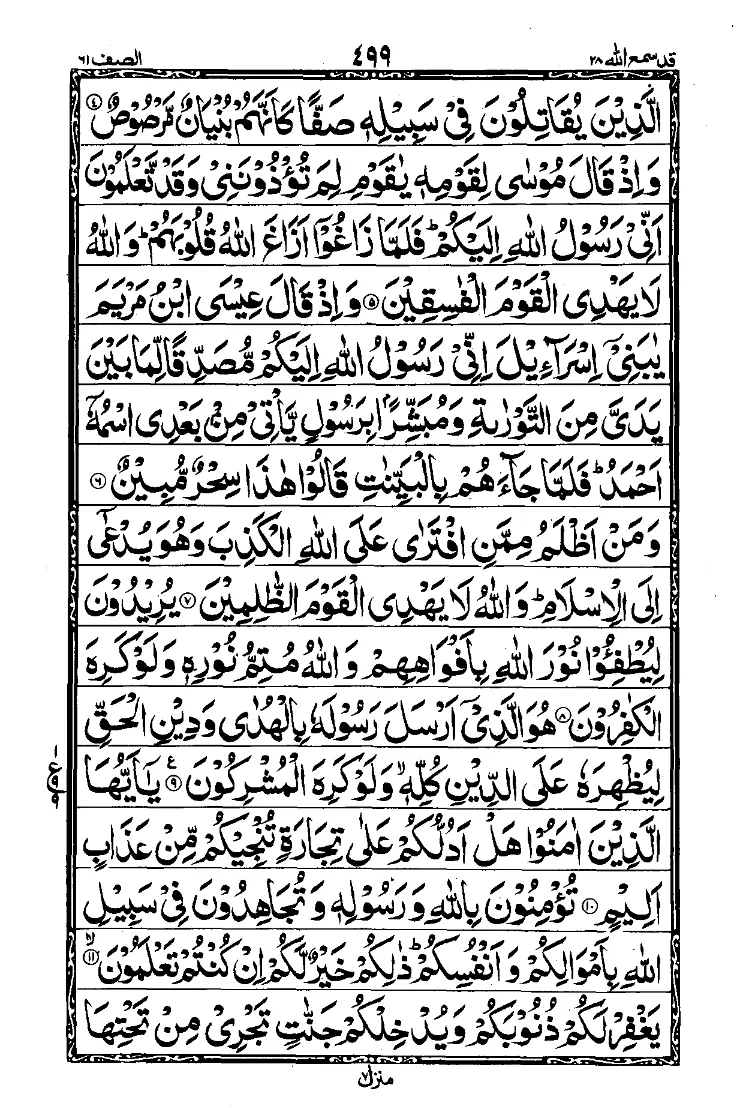 قد سمع الله ٢٨
٤٩٩
الصف ٦١
الَّذِیْنَ یُقَاتِلُوْنَ فِیْ سَبِیْلِهٖ صَفًّا كَاَنَّهُمْ بُنْیَانٌ مَّرْصُوْصٌ ۝٤
وَ اِذْ قَالَ مُوْسٰی لِقَوْمِهٖ یٰقَوْمِ لِمَ تُؤْذُوْنَنِیْ وَ قَدْ تَّعْلَمُوْنَ
اَنِّیْ رَسُوْلُ اللّٰهِ اِلَیْكُمْ ؕ فَلَمَّا زَاغُوْۤا اَزَاغَ اللّٰهُ قُلُوْبَهُمْ ؕ وَ اللّٰهُ
لَا یَهْدِی الْقَوْمَ الْفٰسِقِیْنَ ۝٥ وَ اِذْ قَالَ عِیْسَی ابْنُ مَرْیَمَ
یٰبَنِیْۤ اِسْرَآءِیْلَ اِنِّیْ رَسُوْلُ اللّٰهِ اِلَیْكُمْ مُّصَدِّقًا لِّمَا بَیْنَ
یَدَیَّ مِنَ التَّوْرٰىةِ وَ مُبَشِّرًۢا بِرَسُوْلٍ یَّاْتِیْ مِنْۢ بَعْدِی اسْمُهٗۤ
اَحْمَدُ ؕ فَلَمَّا جَآءَهُمْ بِالْبَیِّنٰتِ قَالُوْا هٰذَا سِحْرٌ مُّبِیْنٌ ۝٦
وَ مَنْ اَظْلَمُ مِمَّنِ افْتَرٰی عَلَی اللّٰهِ الْكَذِبَ وَ هُوَ یُدْعٰۤی
اِلَی الْاِسْلَامِ ؕ وَ اللّٰهُ لَا یَهْدِی الْقَوْمَ الظّٰلِمِیْنَ ۝٧ یُرِیْدُوْنَ
لِیُطْفِـُٔوْا نُوْرَ اللّٰهِ بِاَفْوَاهِهِمْ وَ اللّٰهُ مُتِمُّ نُوْرِهٖ وَ لَوْ كَرِهَ
الْكٰفِرُوْنَ ۝٨ هُوَ الَّذِیْۤ اَرْسَلَ رَسُوْلَهٗ بِالْهُدٰی وَ دِیْنِ الْحَقِّ
لِیُظْهِرَهٗ عَلَی الدِّیْنِ كُلِّهٖ ۙ وَ لَوْ كَرِهَ الْمُشْرِكُوْنَ ۝٩ ع یٰۤاَیُّهَا
الَّذِیْنَ اٰمَنُوْا هَلْ اَدُلُّكُمْ عَلٰی تِجَارَةٍ تُنْجِیْكُمْ مِّنْ عَذَابٍ
اَلِیْمٍ ۝١٠ تُؤْمِنُوْنَ بِاللّٰهِ وَ رَسُوْلِهٖ وَ تُجَاهِدُوْنَ فِیْ سَبِیْلِ
اللّٰهِ بِاَمْوَالِكُمْ وَ اَنْفُسِكُمْ ؕ ذٰلِكُمْ خَیْرٌ لَّكُمْ اِنْ كُنْتُمْ تَعْلَمُوْنَ ۝١١ ۙ
یَغْفِرْ لَكُمْ ذُنُوْبَكُمْ وَ یُدْخِلْكُمْ جَنّٰتٍ تَجْرِیْ مِنْ تَحْتِهَا
منزل ٧